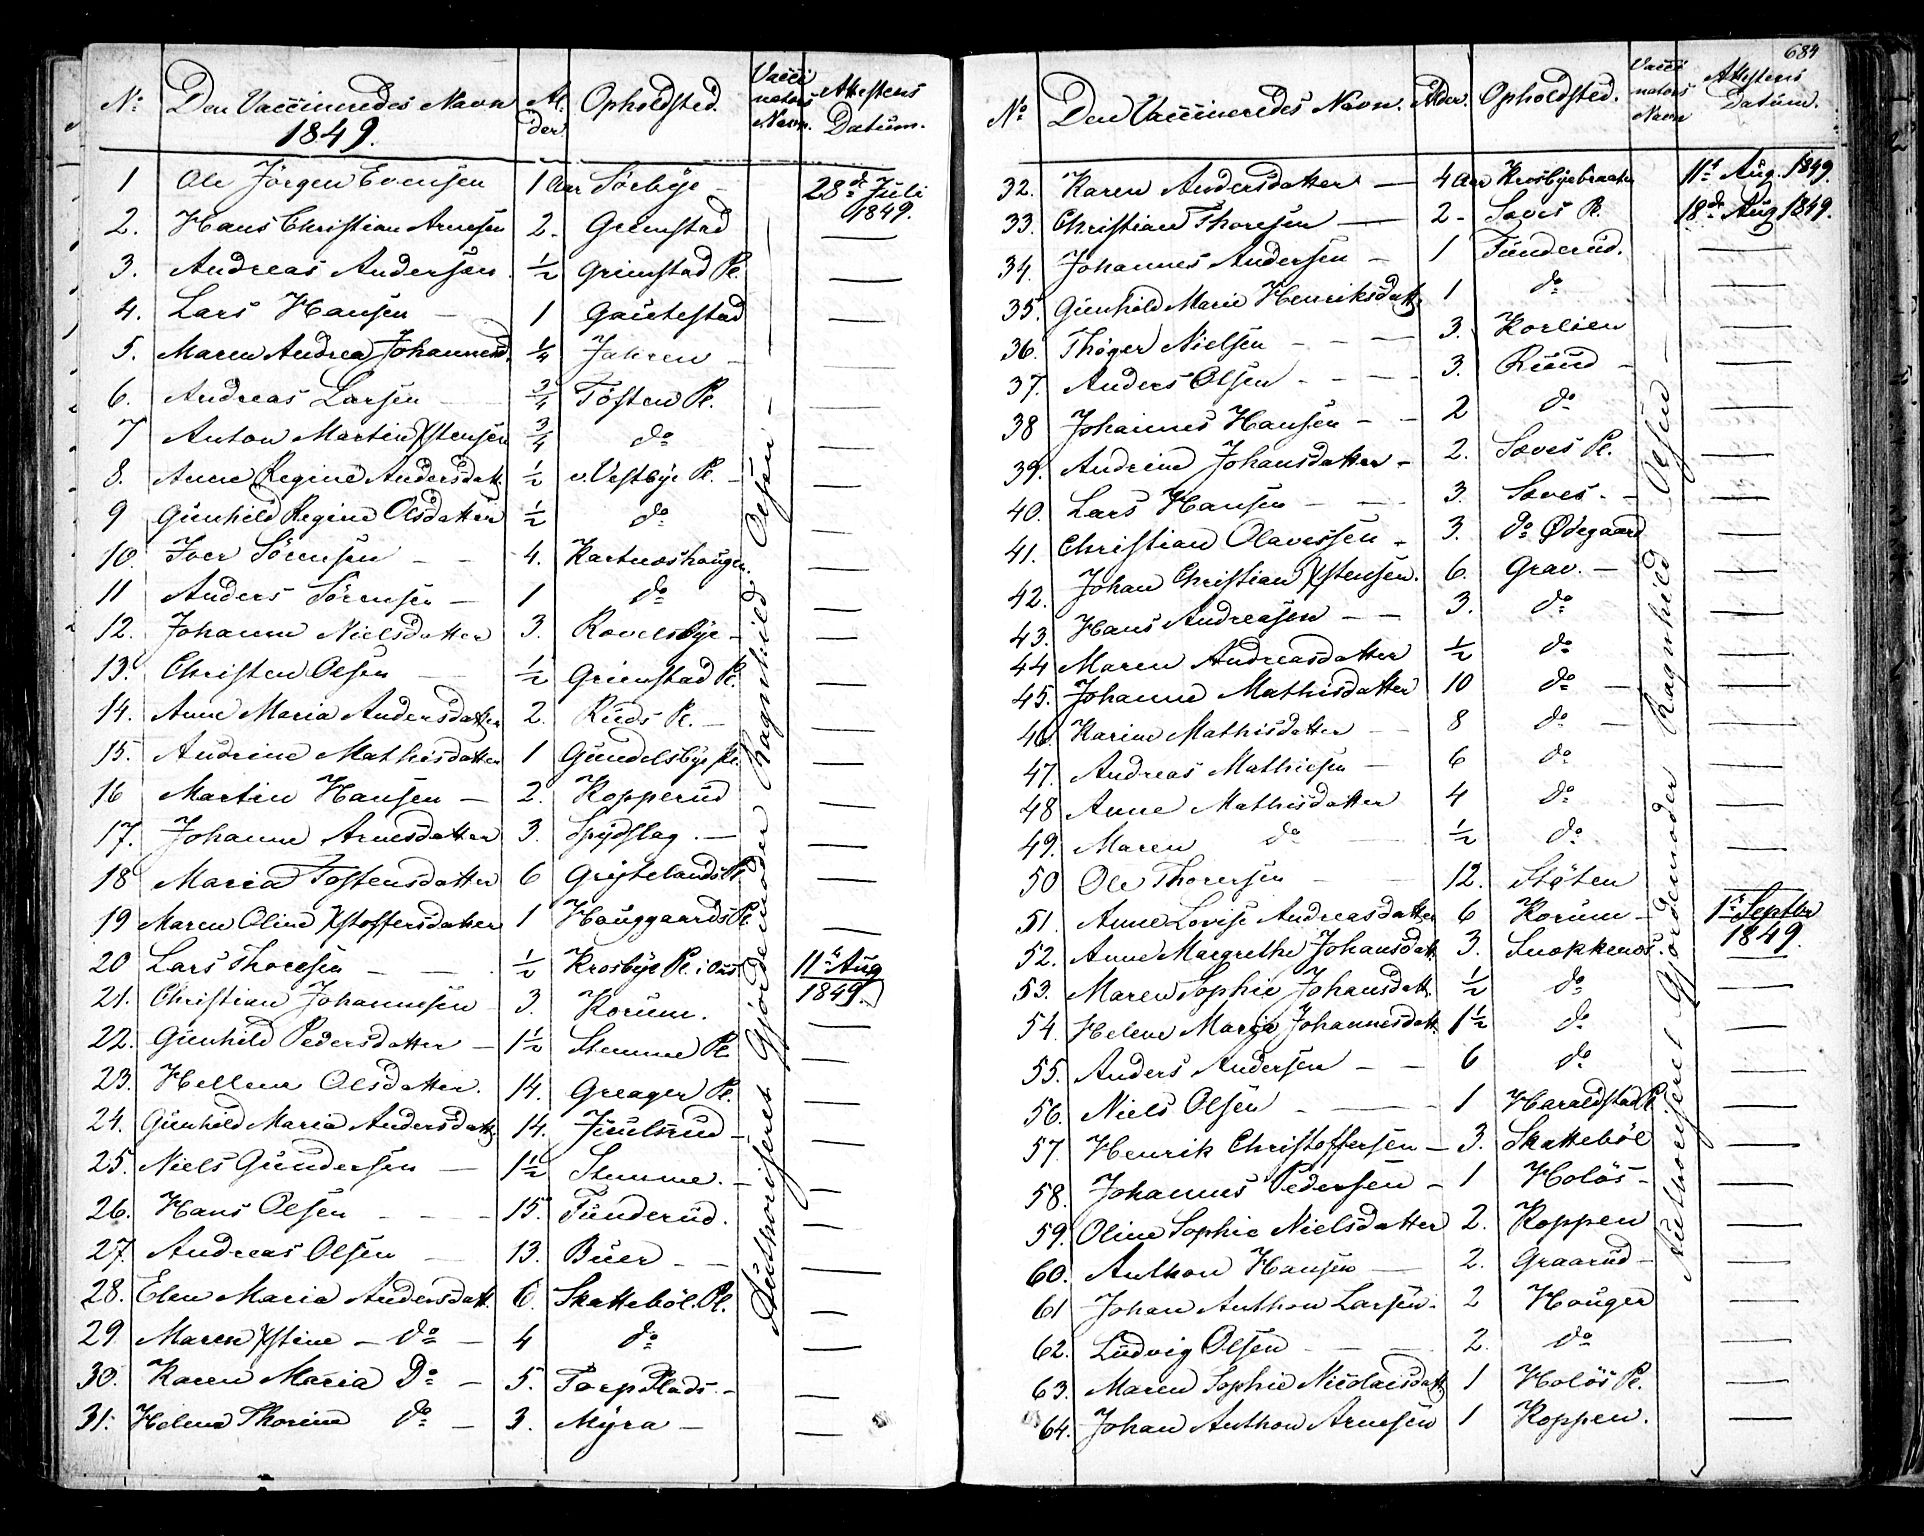 No Den Vaccineredes Navn Al- Opholdsted. Vacci Attestens
1849. der nators Datum.
Navn.
1 Ole Jörgen Evensen 1 Aar Sörbye - 28de Juli
1849.
2. Hans Christian Arnesen 2. Grimstad —
3. Andreas Andersen ½ Grimstad Pl. —
4. Lars Hansen — 1 Gautestad —
5. Maren Andrea Johannesd. ¼ Jahren — —
6. Andreas Larsen ¾ Töften Pl. —
7 Anton Martin Xstensen ¾ do —
8. Anne Regine Andersdatt. ½ v. Vestbye Pl. —
9 Gunhild Regine Olsdatter ½ do —
10. Iver Sörensen - - 4. Kartnoshaugen. —
11 Anders Sörensen — 1 do —
12. Johanne Nielsdatter 3. Ravelsbye — —
13. Christen Olsen ½ Grimstad Pl. —
14. Anne Maria Andersdatter 2. Ruds Pl. — —
15. Andrine Mathisdatter 1 Gundelsbye Pl. —
16 Martin Hansen — 2. Kopperud —
17. Johanne Arnesdatter 3. Spydslag. — —
18 Maria Tostensdatter 6 Gristelands Pl. —
19 Maren Oline Xstoffersdatter 1 Hauggaards Pl. —
20 Lars Thoresen — — ½ Krosbye Pl. i Aas 11te Aug
21. Christian Johannesen 3. Korum. 1849.
22. Gunhild Pedersdatter — 1½ Stemme Pl. —
23. Hellene Olsdatter. 14. Greager Pl. —
24. Gunhild Maria Andersdatt. 14. Juulsrud — —
25. Niels Gundersen — 1½ Stemme. — —
26. Hans Olsen - - - 15. Tunderud. —
27. Andreas Olsen — 13. Buer — — —
28. Elen Maria Andersdatt. 6. Skatteböl. Pl. —
29. Maren Xstine — do — 4 do —
30. Karen Maria Do — 5. Torp Plads. — —
31. Helene Thorine do — 3. Myra — —
Authoriseret Gjordemoder Ragnhild Olsen —
684
No Den Vaccineredes Navn. Alder. Opholdsted. Vacci Attestens
nators Datum.
Navn
32. Karen Andersdatter — 4 Aar Krosbyebraaten 11te Aug. 1849.
33. Christian Thoresen — 2 - Saves Pl. 18de Aug 1849.
34. Johannes Andersen — 1 Tunderud. —
35. Gunhild Marie Henriksdatt. 1 do —
36. Thöger Nielsen - - — 3. Korlien —
37. Anders Olsen - - — 3. Ruud — —
38 Johannes Hansen - - 2 do —
39. Andrine Johansdatter — 2. Saves Pl. —
40. Lars Hansen - — 3. Saves. — —
41. Christian Olavessen — 3. do Ødegaard —
42. Johan Christian Xstensen. 6. Grav. — —
43. Hans Andreasen — — 3. do —
44 Maren Andreasdatter ½ do —
45. Johanne Mathisdatter 10 do — —
46. Karine Mathisdatter — 8 do — —
47. Andreas Mathiesen — 6 do —
48 Anne Mathisdatter 4 do —
49. Maren do — ½ do —
50 Ole Thorersen — 12. Støten —
51. Anne Lovise Andreasdatter 6 Korum — 1te Septbr
52. Anne Margrethe Johansdatt. 3. Snokkenos. 1849.
53. Maren Sophie Johansdatt. ½ do —
54. Helene Maria Johannesdatt. 1½ do —
55. Anders Andersen — — 6 do —
56. Niels Olsen - — - 1 Haraldstad Pl. —
57. Henrik Christoffersen — 3. Skatteböl —
58. Johannes Pedersen — 1 Holös — —
59. Oline Sophie Nielsdatter 2. Koppen —
60. Anthon Hansen — 2. Graarud — —
61 Johan Anthon Larsen. 2 Hauger —
62. Ludvig Olsen - — 2. do —
63. Maren Sophie Nicolaisdatt. 1 Holös Pl. —
64. Johan Anthon Arnesen 1 Koppen. —
Authoriseret Gjordemoder Ragnhild Olsen —